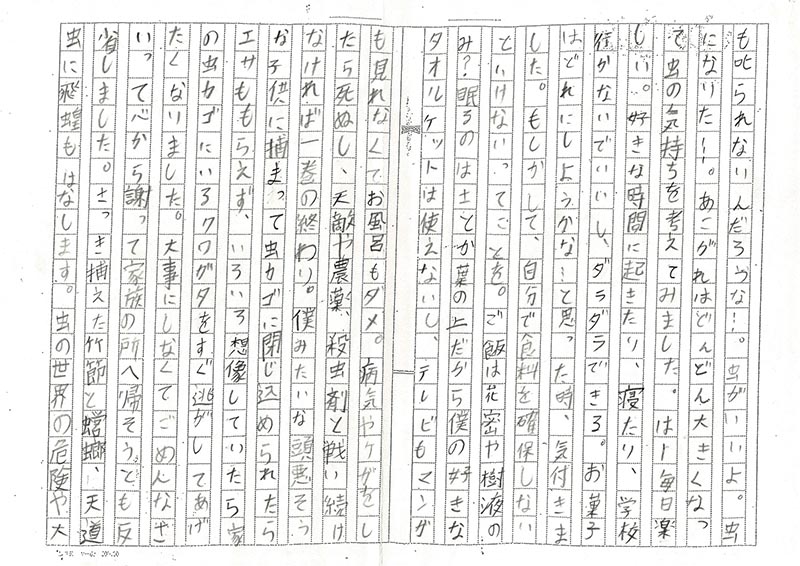 も叱られないんだろうな…。虫がいいよ。虫
になりたー…。あこがれはどんどん大きくなっ
て虫の気持ちを考えてみました。はー毎日楽
しい。好きな時間に起きたり、寝たり、学校
行かないでいいし、ダラダラできる。お菓子
はどれにしようかな…と思った時、気付きま
した。もしかして、自分で食料を確保しない
といけないってことを。ご飯は花密や樹液の
み？眠るのは土とか葉の上だから僕の好きな
タオルケットは使えないし、テレビもマンガ
も見れなくてお風呂もダメ。病気やケガをし
たら死ぬし、天敵や農薬、殺虫剤と戦い続け
なければ一巻の終わり。僕みたいな頭悪そう
な子供に捕まって虫カゴに閉じ込められたら
エサももらえず、いろいろ想像していたら家
の虫カゴにいるクワガタをすぐ逃がしてあげ
たくなりました。大事にしなくてごめんなさ
いって心から謝って家族の所へ帰そうとも反
省しました。さっき捕えた竹節と蟷螂、天道
虫に飛蝗もはなします。虫の世界の危険や大